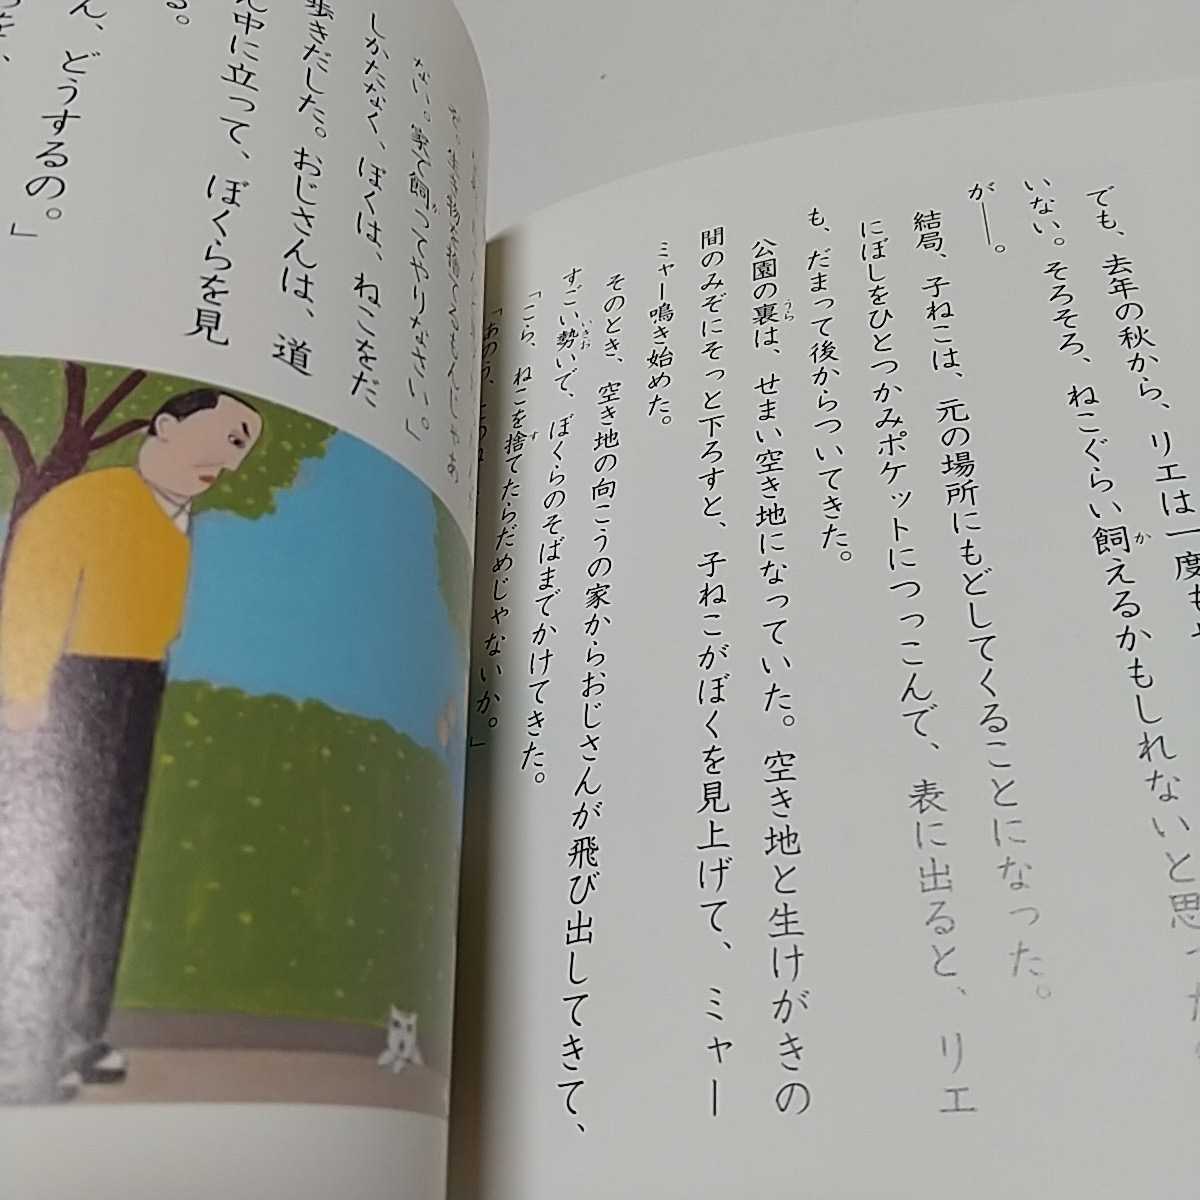 リエは一度も
でも、去年の秋から、
いない。そろそろ、ねこぐらい飼えるかもしれないと思った
が――。
結局、子ねこは、元の場所にもどしてくることになった。
にぼしをひとつかみポケットにつっこんで、表に出ると、リエ
も、だまって後からついてきた。
公園の裏は、せまい空き地になっていた。空き地と生けがきの
間のみぞにそっと下ろすと、子ねこがぼくを見上げて、ミャー
ミャー鳴き始めた。
そのとき、空き地の向こうの家からおじさんが飛び出してきて、
すごい勢いで、ぼくらのそばまでかけてきた。
「こら、ねこを捨てたらだめじゃないか。」
「あのう、
生き物を捨てるもんじゃあ
ない。家で飼ってやりなさい。」
しかたなく、ぼくは、ねこをだ
歩きだした。おじさんは、道
中に立って、ぼくらを見
る。
ん、どうするの。」